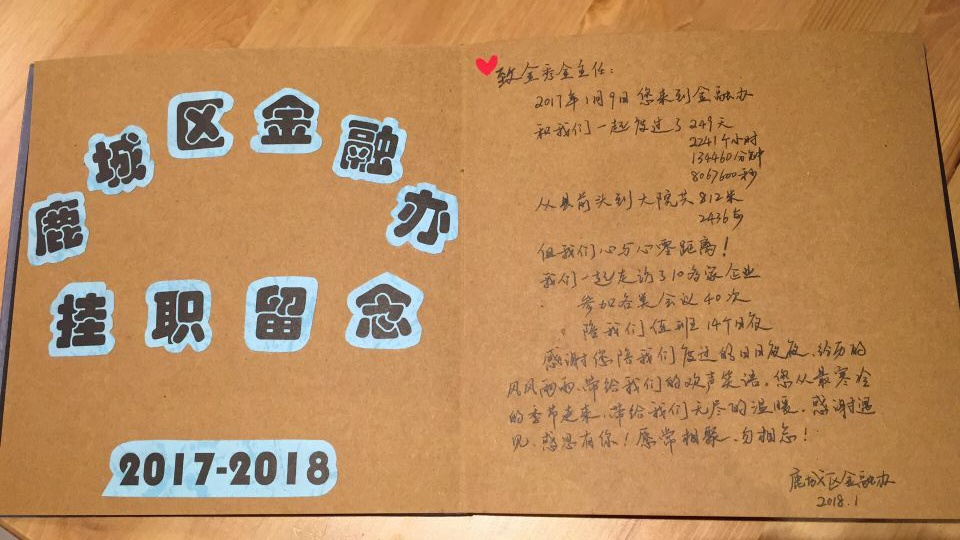 鹿城区金融办
挂职留念
2017-2018
致金秀金主任：
2017年1月9日您来到金融办
和我们一起度过了249天
2241个小时
134460分钟
8067600秒
从县前头到大院共812米
2436步
但我们心与心零距离！
我们一起走访了10多家企业
参加各类会议40次
陪我们值班14个日夜
感谢您陪我们度过的日日夜夜、经历的
风风雨雨、带给我们的欢声笑语。您从最寒冷
的季节走来，带给我们无尽的温暖。感谢遇
见，感恩有你！愿常相聚，勿相忘！
鹿城区金融办
2018.1